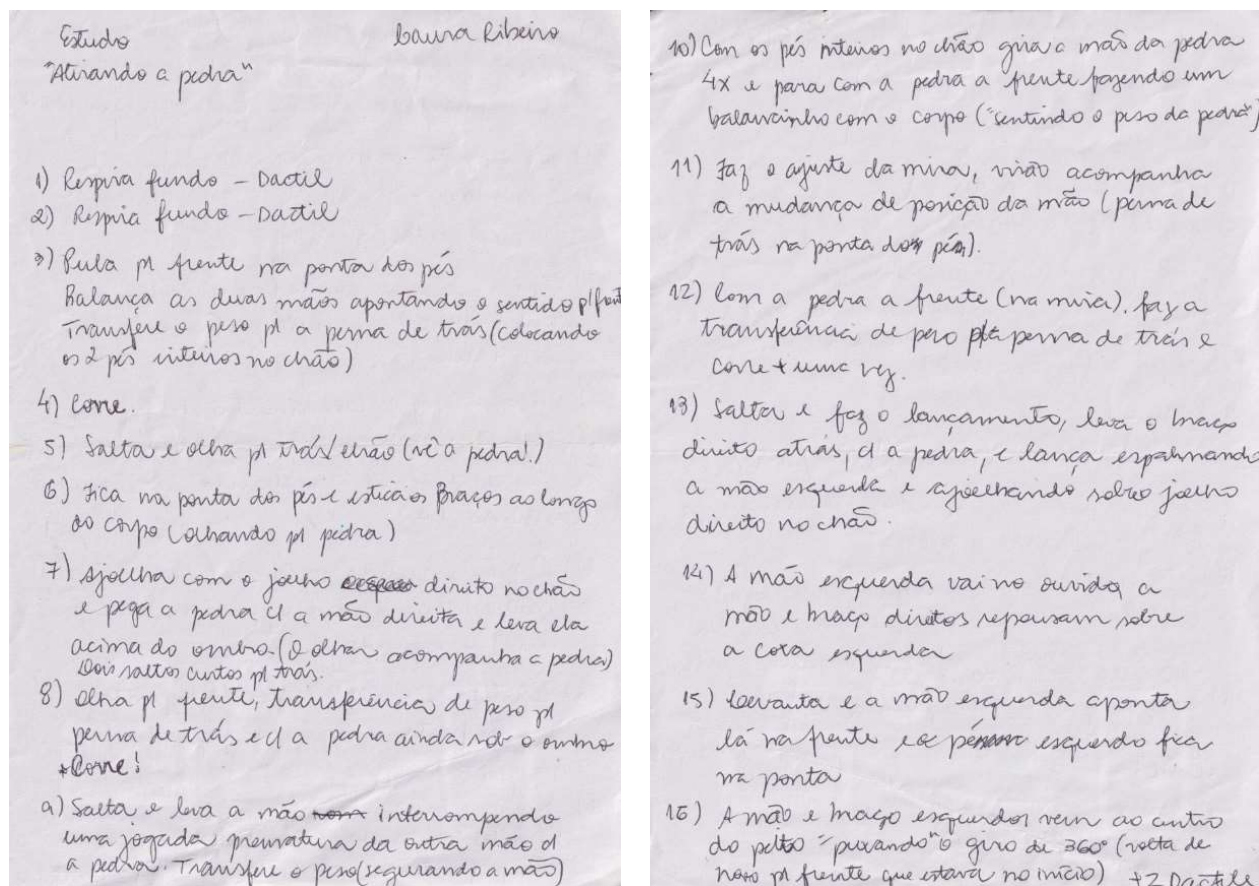 Estudo
Laura Ribeiro
"Atirando a pedra"
1) Respira fundo - Dactil
2) Respira fundo - Dactil
3) Pula p/ frente na ponta dos pés
Balança as duas mãos apontando o sentido p/ frente
Transfere o peso p/ a perna de trás (colocando
os 2 pés inteiros no chão)
4) Corre.
5) Salta e olha p/ trás/chão (vê a pedra!)
6) Fica na ponta dos pés e estica os Braços ao longo
do corpo (olhando p/ pedra)
7) Ajoelha com o joelho direito no chão
e pega a pedra c/ a mão direita e leva ela
acima do ombro. (O olhar acompanha a pedra)
Dois saltos curtos p/ trás.
8) Olha p/ frente, transferência de peso p/
perna de trás e c/ a pedra ainda sob o ombro
*Corre!
9) Salta e leva a mão interrompendo
uma jogada prematura da outra mão c/
a pedra. Transfere o peso (segurando a mão)
10) Com os pés inteiros no chão gira a mão da pedra
4x e para com a pedra a frente fazendo um
balancinho com o corpo ("sentindo o peso da pedra")
11) Faz o ajuste da mira, visão acompanha
a mudança de posição da mão (perna de
trás na ponta dos pés).
12) Com a pedra a frente (na mira), faz a
transferência de peso p/a perna de trás e
corre + uma vez.
13) Salta e faz o lançamento, leva o braço
direito atrás, c/ a pedra, e lança espalmando
a mão esquerda e ajoelhando sobre joelho
direito no chão.
14) A mão esquerda vai no ouvido, a
mão e braço direitos repousam sobre
a coxa esquerda
15) Levanta e a mão esquerda aponta
lá na frente e o pé esquerdo fica
na ponta
16) A mão e braço esquerdos vem ao centro
do peito "puxando" o giro de 360° (volta de
novo p/ frente que estava no início) +2 Dactils